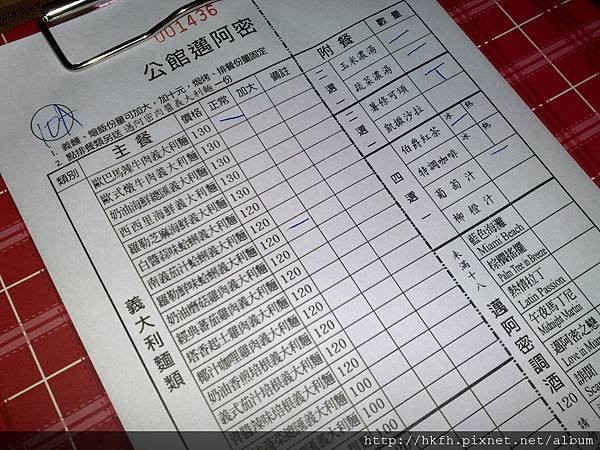 001436
公館邁阿密
10A
1. 義麵、燴飯份量可加大，加十元，焗烤、排餐份量固定
2. 點排餐類另送 邁阿密肉醬義大利麵一份
類別 主餐 價格 正常 加大 備註
義大利麵類
歐巴馬辣牛肉義大利麵 130
歐式燉牛肉義大利麵 130
奶油海鮮總匯義大利麵 130
西西里海鮮義大利麵 130
羅勒芝麻海鮮義大利麵 130
白醬蒜味蛤蜊義大利麵
南義茄汁蛤蜊義大利麵
羅勒鮮味蛤蜊義大利麵 120
奶油蘑菇雞肉義大利麵 120
經典番茄雞肉義大利麵 120
塔香起士雞肉義大利麵 120
椰汁咖哩雞肉義大利麵 120
奶油香煎培根義大利麵 120
義式茄汁培根義大利麵 100
香醬辣味培根義大利麵 100
義大利麵 100
附餐 數量
二選一
玉米濃湯
蔬菜濃湯
二選一
薯條可頌
凱撒沙拉
四選一
伯爵紅茶 冰 熱
特調咖啡 冰 熱
葡萄汁
柳橙汁
未滿十八
邁阿密調酒 120
藍色海灘
Miami Beach
棕櫚搖擺
Palm Tree in Breeze
熱情拉丁
Latin Passion
午夜馬丁尼
Midnight Martini
邁阿密之戀
Love in Miami
請
http://hkfh.pixnet.net/album